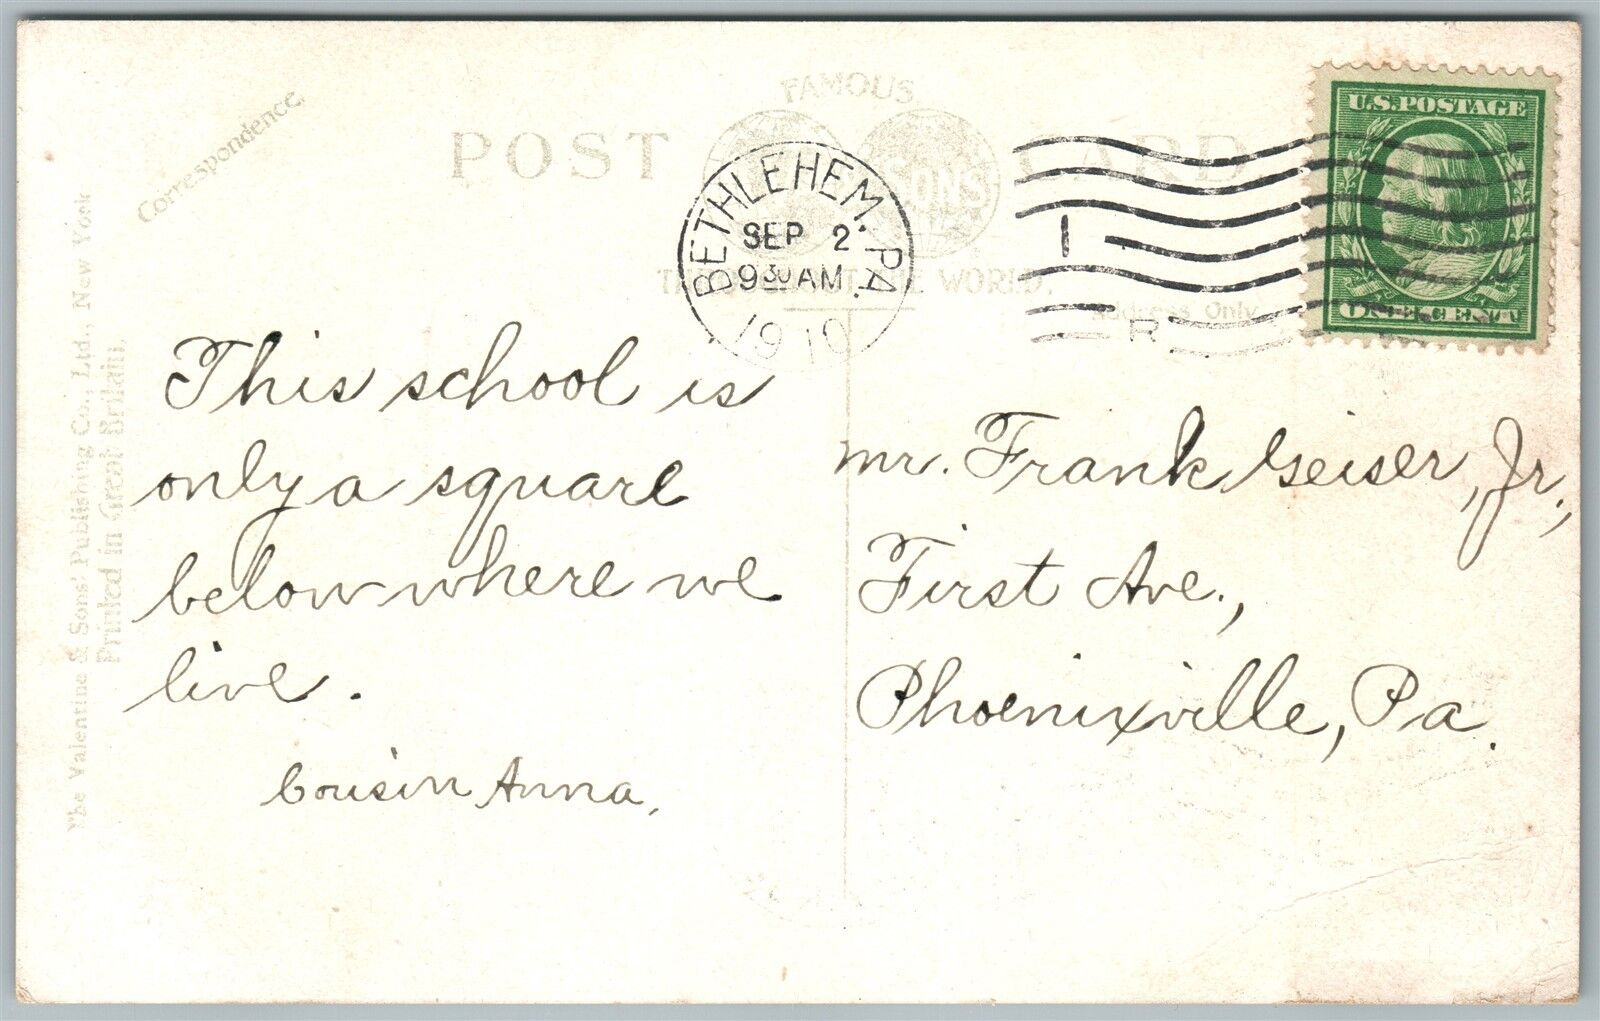 Correspondence.
FAMOUS
POST CARD
SONS
THROUGHOUT THE WORLD.
Address Only
The Valentine & Sons' Publishing Co., Ltd., New York
Printed in Great Britain.
BETHLEHEM, PA.
SEP 2
9 30 AM
1910
1
R
U.S. POSTAGE
ONE CENT
This school is
only a square
below where we
live.
Cousin Anna,
Mr. Frank Geiser, Jr.,
First Ave.,
Phoenixville, Pa.